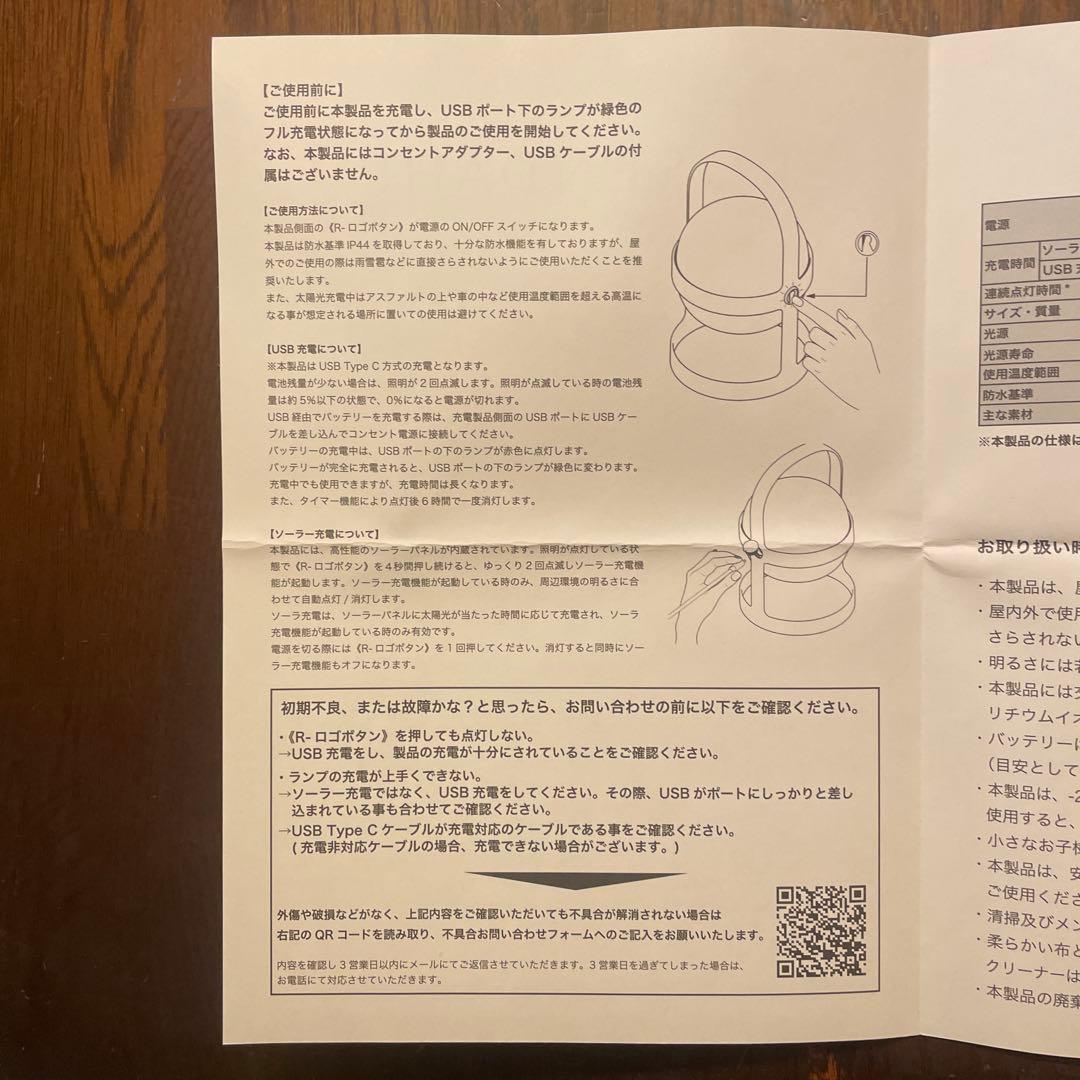 【ご使用前に】
ご使用前に本製品を充電し、USB ポート下のランプが緑色の
フル充電状態になってから製品のご使用を開始してください。
なお、本製品にはコンセントアダプター、USB ケーブルの付
属はございません。
【ご使用方法について】
本製品側面の《R- ロゴボタン》が電源の ON/OFF スイッチになります。
本製品は防水基準 IP44 を取得しており、十分な防水機能を有しておりますが、屋
外でのご使用の際は雨雪雹などに直接さらされないようにご使用いただくことを推
奨いたします。
また、太陽光充電中はアスファルトの上や車の中など使用温度範囲を超える高温に
なる事が想定される場所に置いての使用は避けてください。
【USB 充電について】
※本製品は USB Type C 方式の充電となります。
電池残量が少ない場合は、照明が 2 回点滅します。照明が点滅している時の電池残
量は約 5%以下の状態で、0%になると電源が切れます。
USB 経由でバッテリーを充電する際は、充電製品側面の USB ポートに USB ケー
ブルを差し込んでコンセント電源に接続してください。
バッテリーの充電中は、USB ポートの下のランプが赤色に点灯します。
バッテリーが完全に充電されると、USB ポートの下のランプが緑色に変わります。
充電中でも使用できますが、充電時間は長くなります。
また、タイマー機能により点灯後 6 時間で一度消灯します。
【ソーラー充電について】
本製品には、高性能のソーラーパネルが内蔵されています。照明が点灯している状
態で《R- ロゴボタン》を 4 秒間押し続けると、ゆっくり 2 回点滅しソーラー充電機
能が起動します。ソーラー充電機能が起動している時のみ、周辺環境の明るさに合
わせて自動点灯 / 消灯します。
ソーラ充電は、ソーラーパネルに太陽光が当たった時間に応じて充電され、ソーラ
充電機能が起動している時のみ有効です。
電源を切る際には《R- ロゴボタン》を 1 回押してください。消灯すると同時にソー
ラー充電機能もオフになります。
初期不良、または故障かな？と思ったら、お問い合わせの前に以下をご確認ください。
・《R- ロゴボタン》を押しても点灯しない。
→USB 充電をし、製品の充電が十分にされていることをご確認ください。
・ランプの充電が上手くできない。
→ソーラー充電ではなく、USB 充電をしてください。その際、USB がポートにしっかりと差し
込まれている事も合わせてご確認ください。
→USB Type C ケーブルが充電対応のケーブルである事をご確認ください。
( 充電非対応ケーブルの場合、充電できない場合がございます。)
外傷や破損などがなく、上記内容をご確認いただいても不具合が解消されない場合は
右記の QR コードを読み取り、不具合お問い合わせフォームへのご記入をお願いいたします。
内容を確認し 3 営業日以内にメールにてご返信させていただきます。3 営業日を過ぎてしまった場合は、
お電話にて対応させていただきます。
R
電源
充電時間
ソーラ
USB 充
連続点灯時間 *
サイズ・質量
光源
光源寿命
使用温度範囲
防水基準
主な素材
※本製品の仕様は
お取り扱い時
・本製品は、
・屋内外で使用
さらされない
・明るさには
・本製品には
リチウムイオ
・バッテリーに
（目安として
・本製品は、-2
使用すると、
・小さなお子様
・本製品は、安
ご使用くださ
・清掃及びメン
・柔らかい布と
クリーナーは
・本製品の廃棄